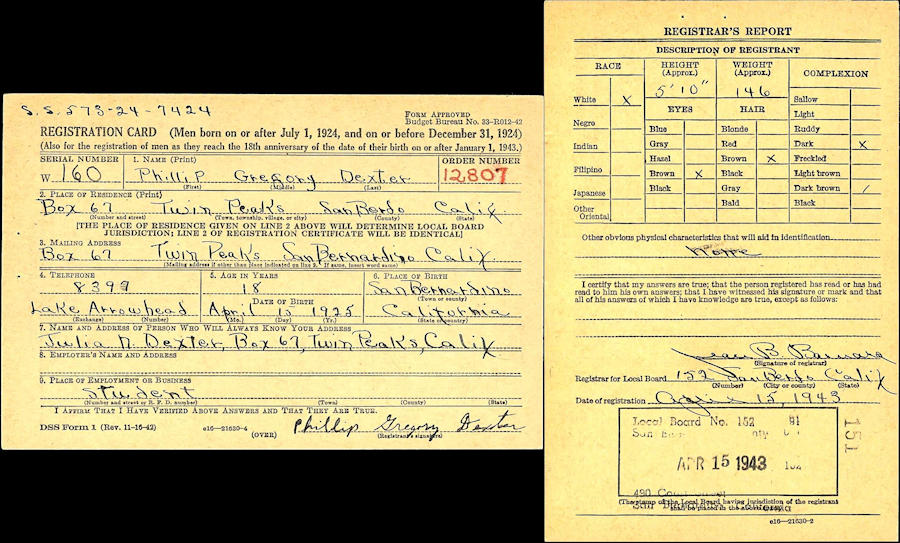 S.S. 573-24-7424
FORM APPROVED
Budget Bureau No. 33-R012-42
REGISTRATION CARD (Men born on or after July 1, 1924, and on or before December 31, 1924)
(Also for the registration of men as they reach the 18th anniversary of the date of their birth on or after January 1, 1943.)
SERIAL NUMBER 1. NAME (Print) ORDER NUMBER
W. 160 Phillip Gregory Dexter 12807
(First) (Middle) (Last)
2. PLACE OF RESIDENCE (Print)
Box 67 Twin Peaks San Berdo Calif.
(Number and street) (Town, township, village, or city) (County) (State)
[THE PLACE OF RESIDENCE GIVEN ON LINE 2 ABOVE WILL DETERMINE LOCAL BOARD
JURISDICTION; LINE 2 OF REGISTRATION CERTIFICATE WILL BE IDENTICAL]
3. MAILING ADDRESS
Box 67 Twin Peaks San Bernardino Calif.
[Mailing address if other than place indicated on line 2. If same, insert word same]
4. TELEPHONE 5. AGE IN YEARS 6. PLACE OF BIRTH
8399 18 San Bernardino
DATE OF BIRTH (Town or county)
Lake Arrowhead April 15 1925 California
(Exchange) (Number) (Mo.) (Day) (Yr.) (State or country)
7. NAME AND ADDRESS OF PERSON WHO WILL ALWAYS KNOW YOUR ADDRESS
Julia N. Dexter, Box 67, Twin Peaks, Calif
8. EMPLOYER'S NAME AND ADDRESS
9. PLACE OF EMPLOYMENT OR BUSINESS
student
(Number and street or R. F. D. number) (Town) (County) (State)
I AFFIRM THAT I HAVE VERIFIED ABOVE ANSWERS AND THAT THEY ARE TRUE.
DSS Form 1 (Rev. 11-16-42) e16-21630-4 (OVER) Phillip Gregory Dexter
(Registrant's signature)
REGISTRAR'S REPORT
DESCRIPTION OF REGISTRANT
RACE HEIGHT (Approx.) WEIGHT (Approx.) COMPLEXION
5' 10" 146
White X EYES HAIR Sallow
Light
Negro Blue Blonde Ruddy
Indian Gray Red Dark X
Hazel Brown X Freckled
Filipino Brown X Black Light brown
Japanese Black Gray Dark brown /
Other Oriental Bald Black
Other obvious physical characteristics that will aid in identification
None
I certify that my answers are true; that the person registered has read or has had
read to him his own answers; that I have witnessed his signature or mark and that
all of his answers of which I have knowledge are true, except as follows:
(Signature of registrar)
Registrar for Local Board 152 San Berdo Calif
(Number) (City or county) (State)
Date of registration April 15, 1943
Local Board No. 152
San
APR 15 1943
151
490
(The stamp of the Local Board having jurisdiction of the registrant
shall be placed in the above space)
e16—21630-2